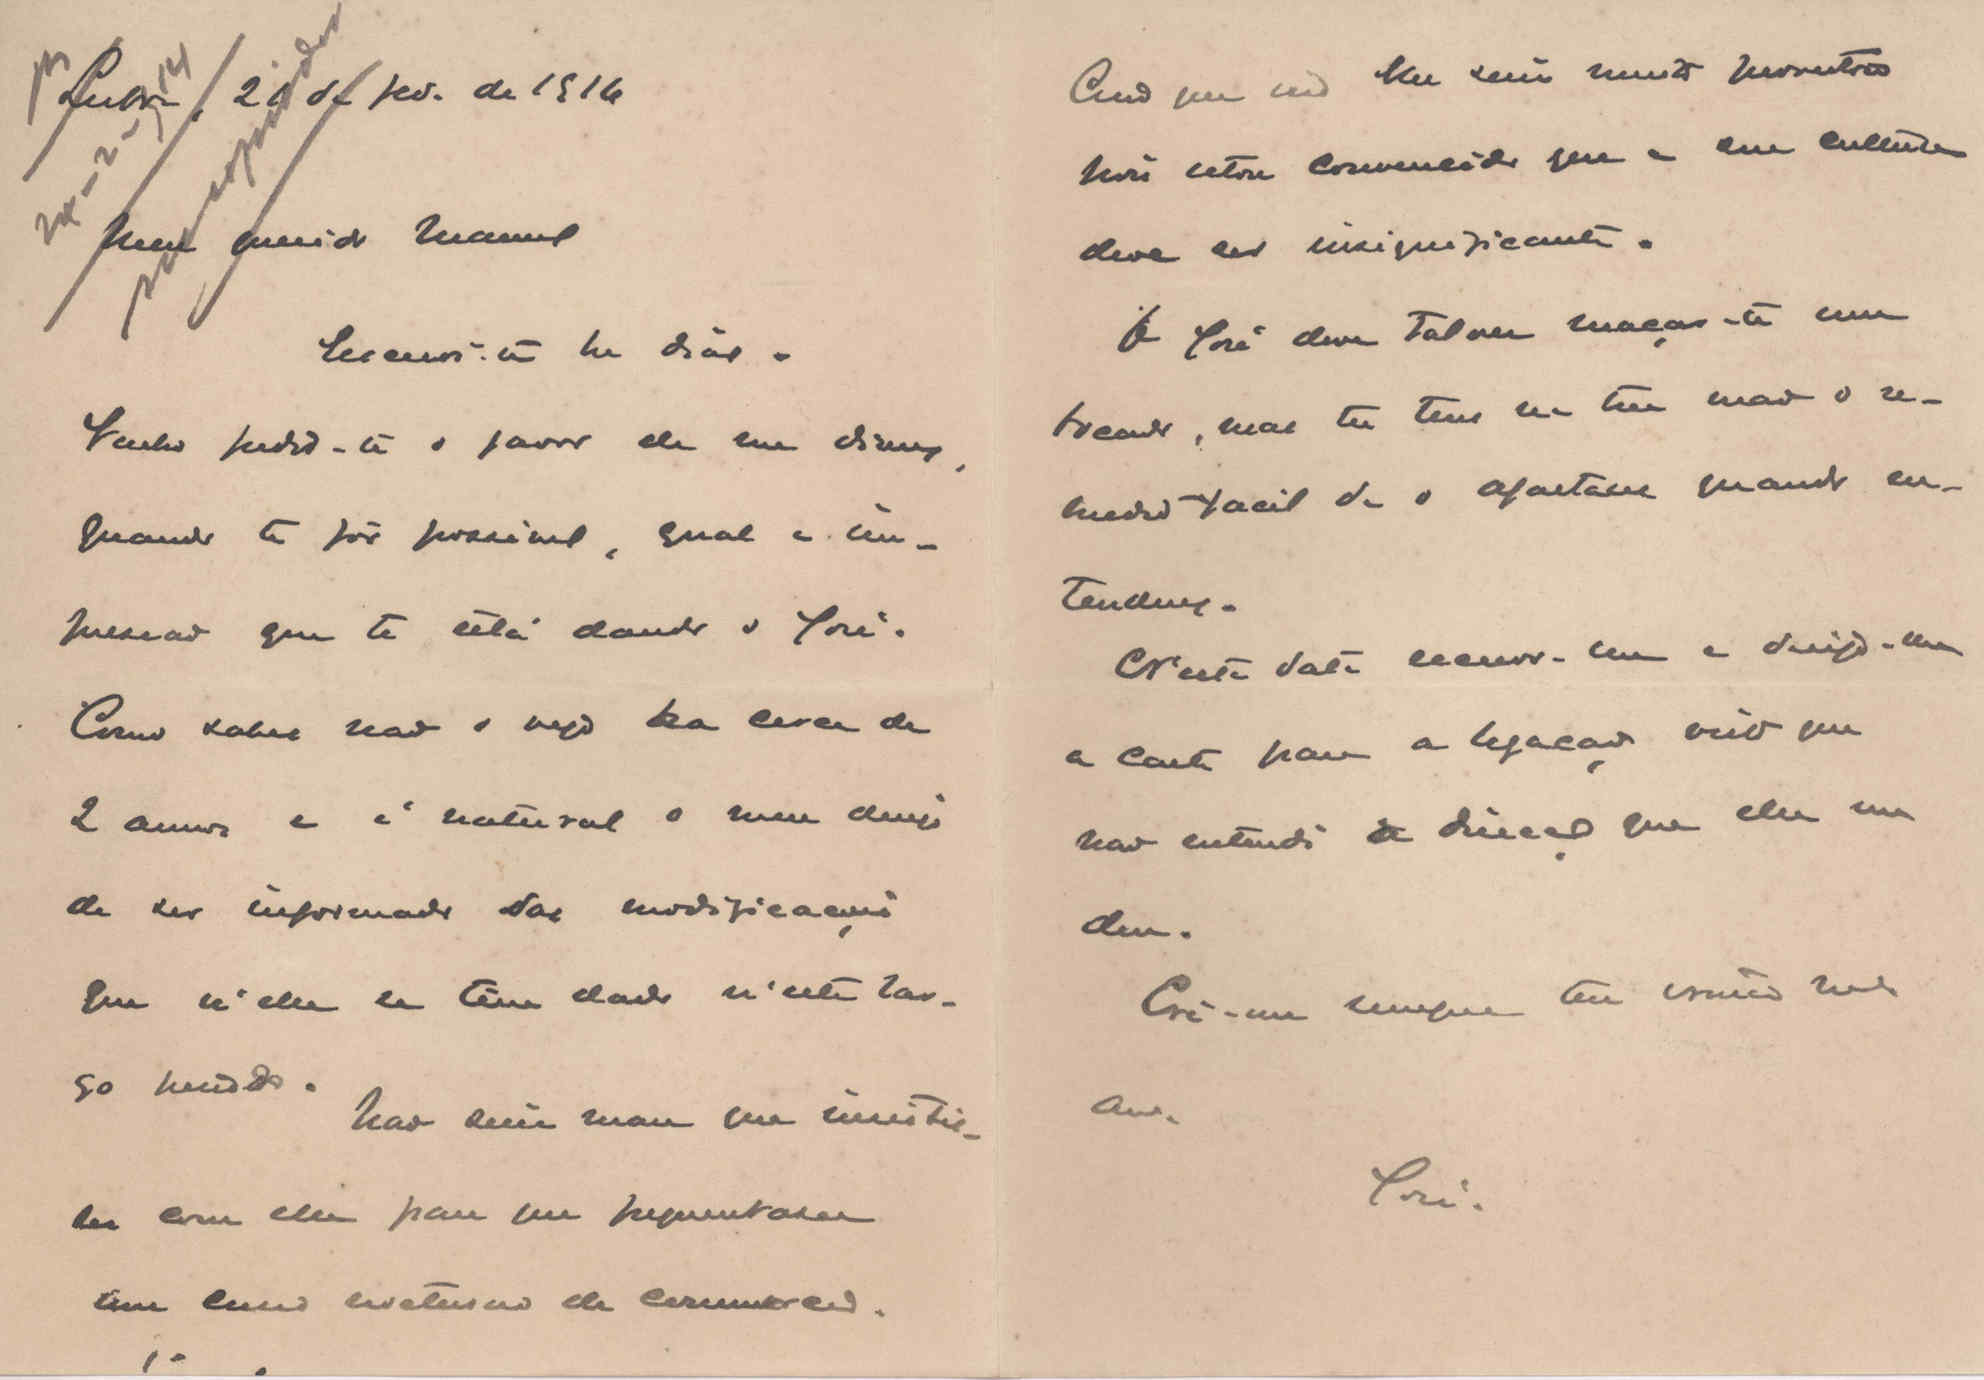 Lisboa, 20 de fev. de 1914
24-2-914
Meu querido Manuel
Escrevi-te ha dias.
Venho pedir-te o favor de me dizeres,
quando te fôr possivel, qual a im-
pressão que te está dando o José.
Como sabes não o vejo ha cerca de
2 annos e é natural o meu desejo
de ser informado das modificações
que n'elle se têm dado n'este lar-
go periodo.
Não seria mau que insistis-
ses com elle para que frequentasse
um curso nocturno de commercio.
Creio que isso lhe seria muito proveitoso
pois estou convencido que a sua cultura
deve ser insignificante.
O José deve talvez maçar-te um
bocado, mas tu tens na tua mão o re-
medio facil de o afastares quando en-
tenderes.
N'esta data escrevo-lhe e dirijo-lhe
a carta para a legação visto que
não entendi a direcção que elle me
deu.
Crê-me sempre teu irmão mto
amo.
José.